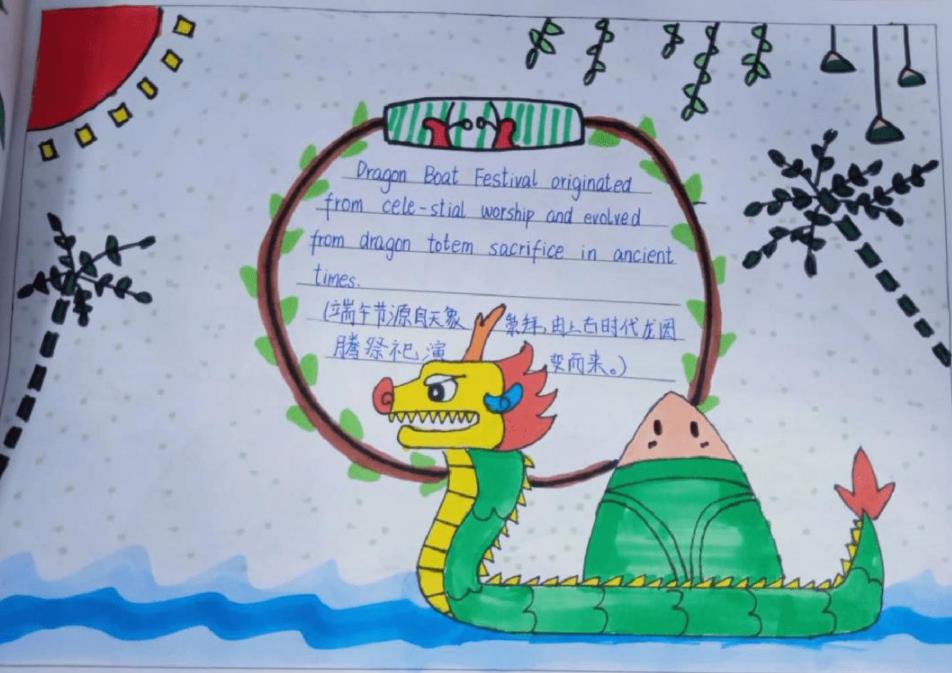 Dragon Boat Festival originated
from cele-stial worship and evolved
from dragon totem sacrifice in ancient
times.
(端午节源自天象崇拜,由上古时代龙图
腾祭祀演变而来。)